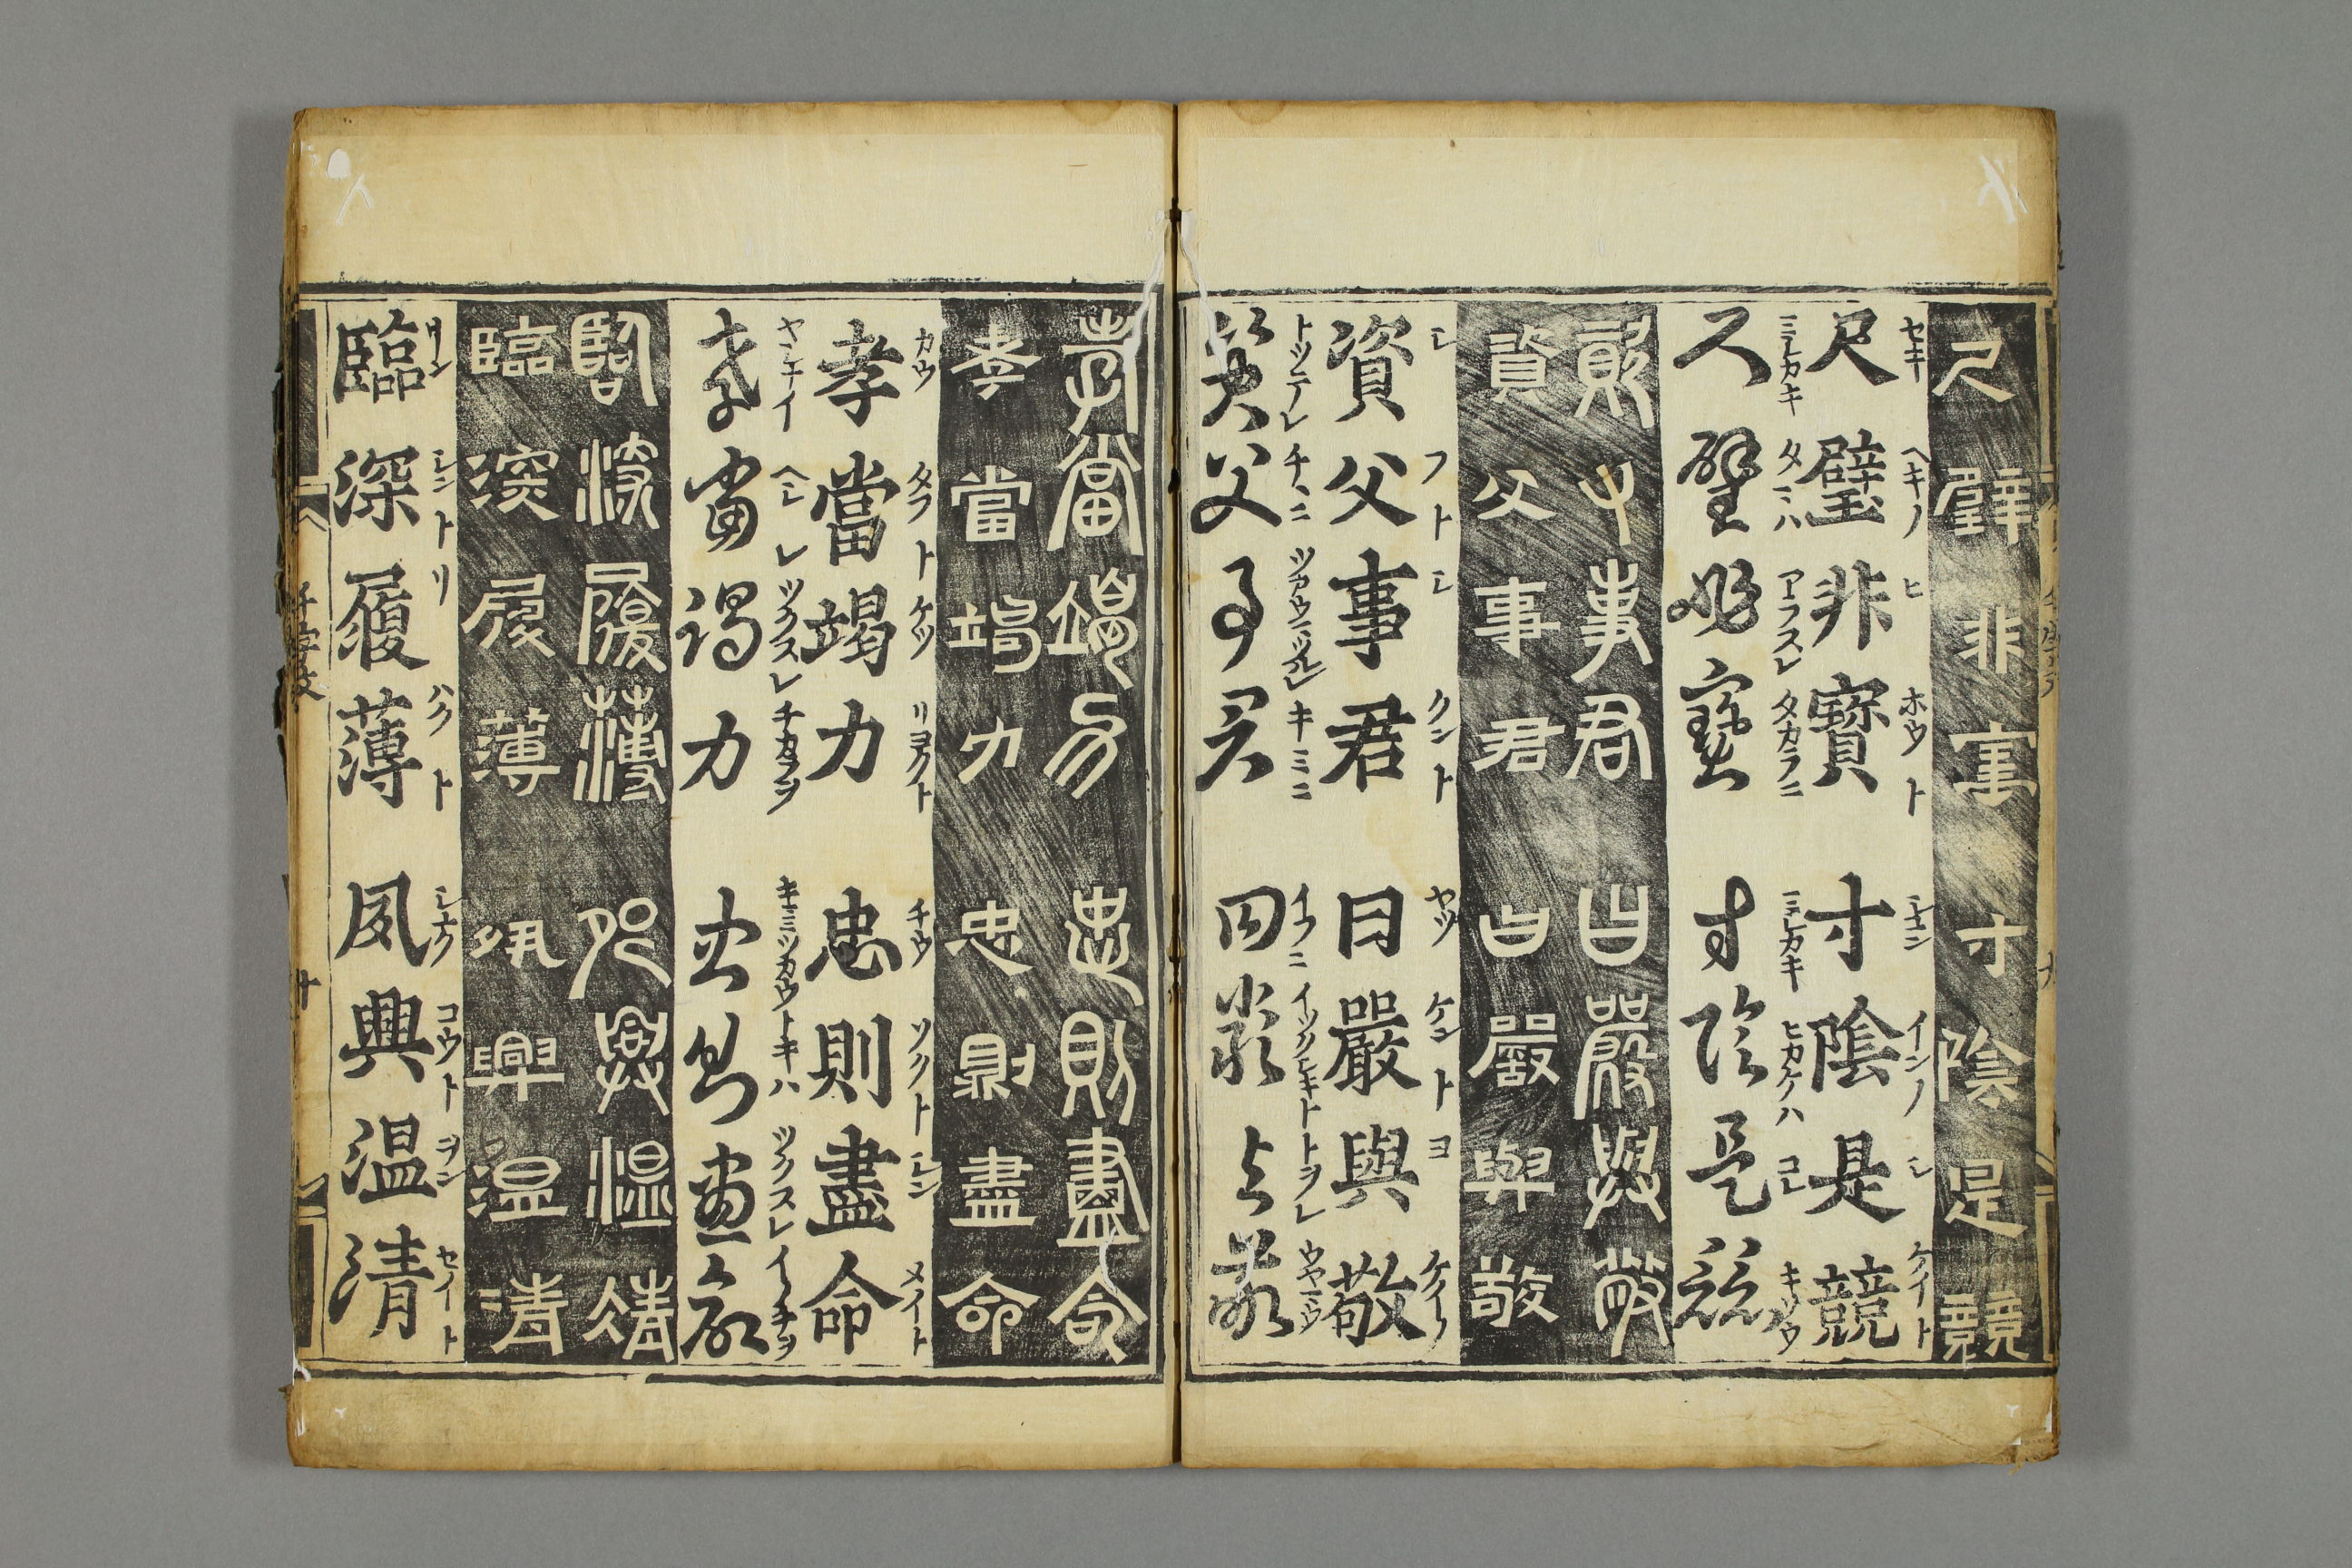 尺璧非寶寸陰是競
セキ ヘキノ ヒ ホウト シユン インノ シ ケイト
尺璧非寶寸陰是競
ミシカキ タマハ アラスレ タカラニ ミシカキ ヒカケハ コレ キソウ
尺璧非寶寸陰是競
資父事君曰嚴與敬
資父事君曰嚴與敬
シ フト シ クント ヤツ ケント ヨ ケイノ
資父事君曰嚴與敬
トツテレ チヽニ ツカウマツルレ キミニ イフニ イツクシキト トヲレ ウヤマウ
資父事君曰嚴與敬
孝當竭力忠則盡命
孝當竭力忠則盡命
カウ タフト ケツ リヨクト チウ ソクト シン メイト
孝當竭力忠則盡命
ヘシレ ツクスレ チカラヲ キミツカウトキハ ツクスレ イノチヲ
孝當竭力忠則盡命
臨深履薄夙興温凊
臨深履薄夙興温清
リン シント リ ハクト シユク コウト ヲン セイト
臨深履薄夙興温清
千字文
十